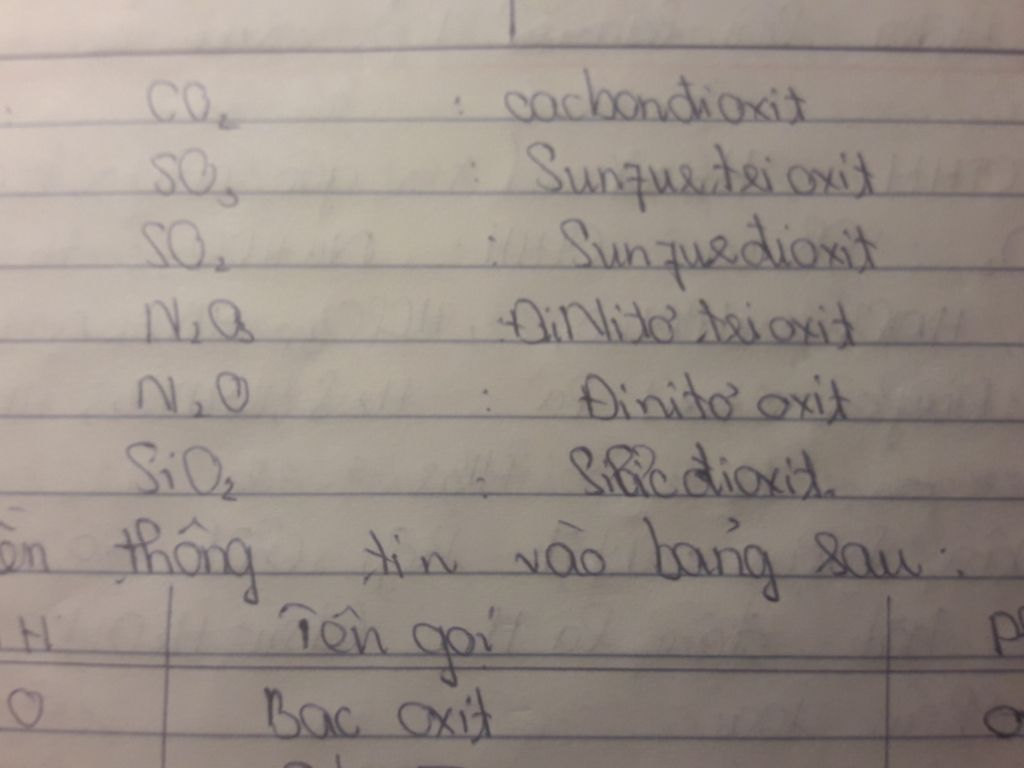 CO₂ : cacbondioxit
SO₃ : Sunfurơ trioxit
SO₂ : Sunfurơ đioxit
N₂O₃ : ĐiNitơ trioxit
N₂O : Đinitơ oxit
SiO₂ : Silic đioxit.
thông tin vào bảng sau:
H Tên gọi
O Bạc oxit